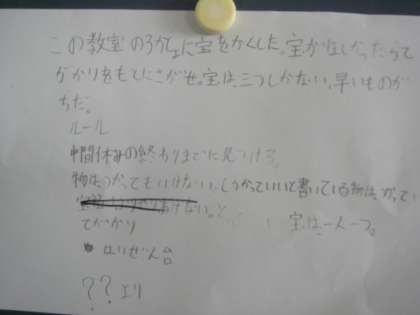 この教室の3かしょに宝をかくした。宝がほしかったらて
がかりをもてにさがせ。宝は三つしかない、早いものが
ちだ。
ルール
中間休みの終わりまでに見つけろ。
物はつかってもいけない。しかっていいと書いている物は、かってい
てがかり
宝は一人一つ。
はいぜん台
??より